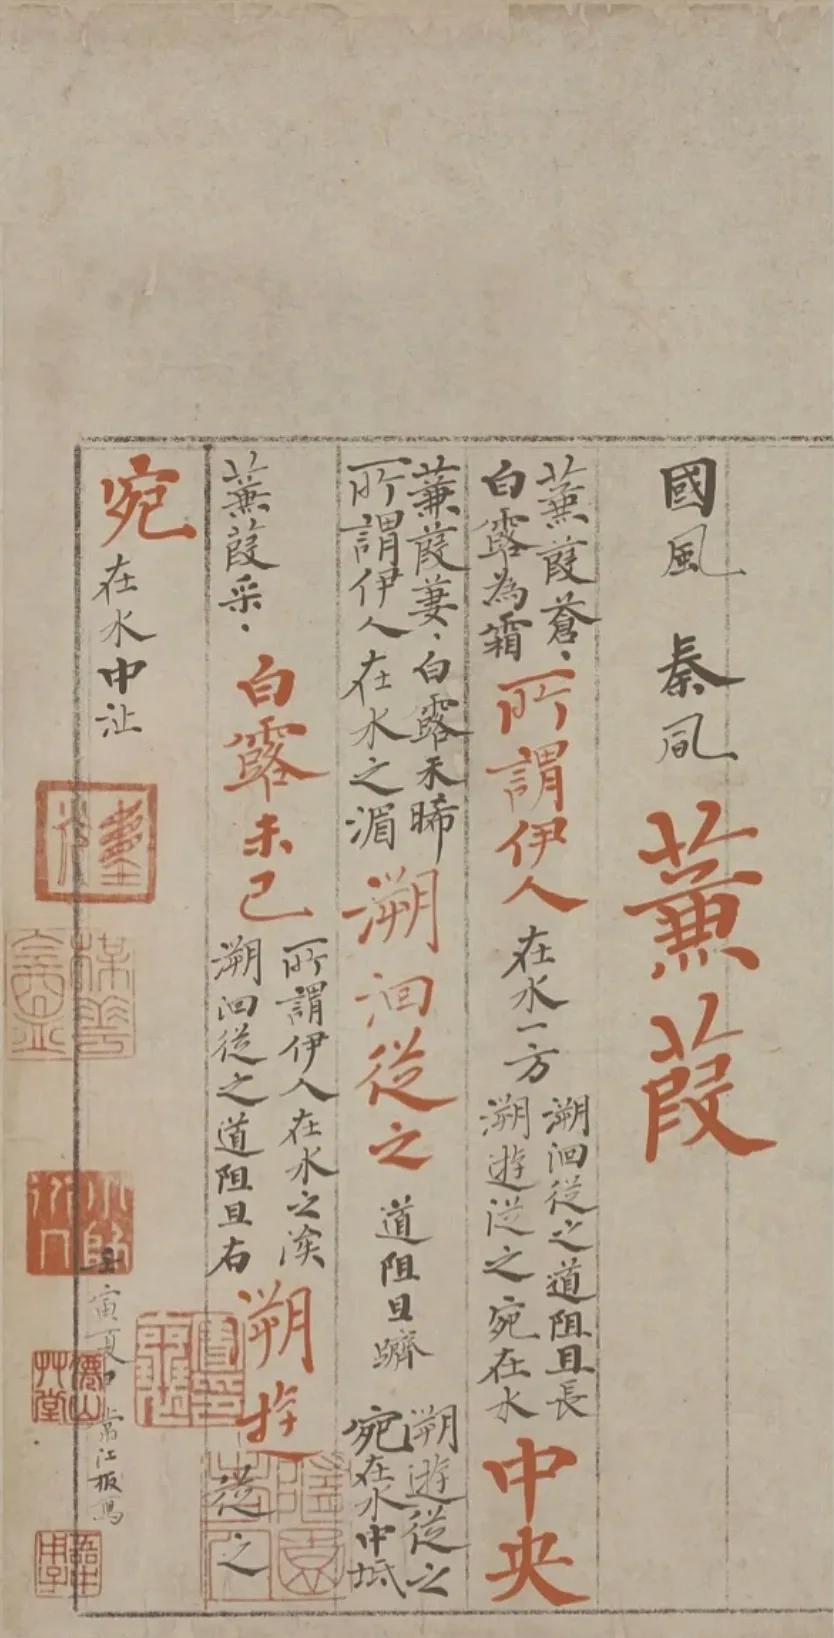 國風 秦風 蒹葭
蒹葭蒼、
白露為霜
所謂伊人
在水一方
溯洄從之道阻且長
溯遊從之宛在水
中央
蒹葭萋、白露未晞
所謂伊人在水之湄
溯洄從之
道阻且躋
溯遊從之
宛在水中坻
蒹葭采、
白露未已
所謂伊人在水之涘
溯洄從之道阻且右
溯遊從之
宛在水中沚
壬寅夏
僊山艸堂